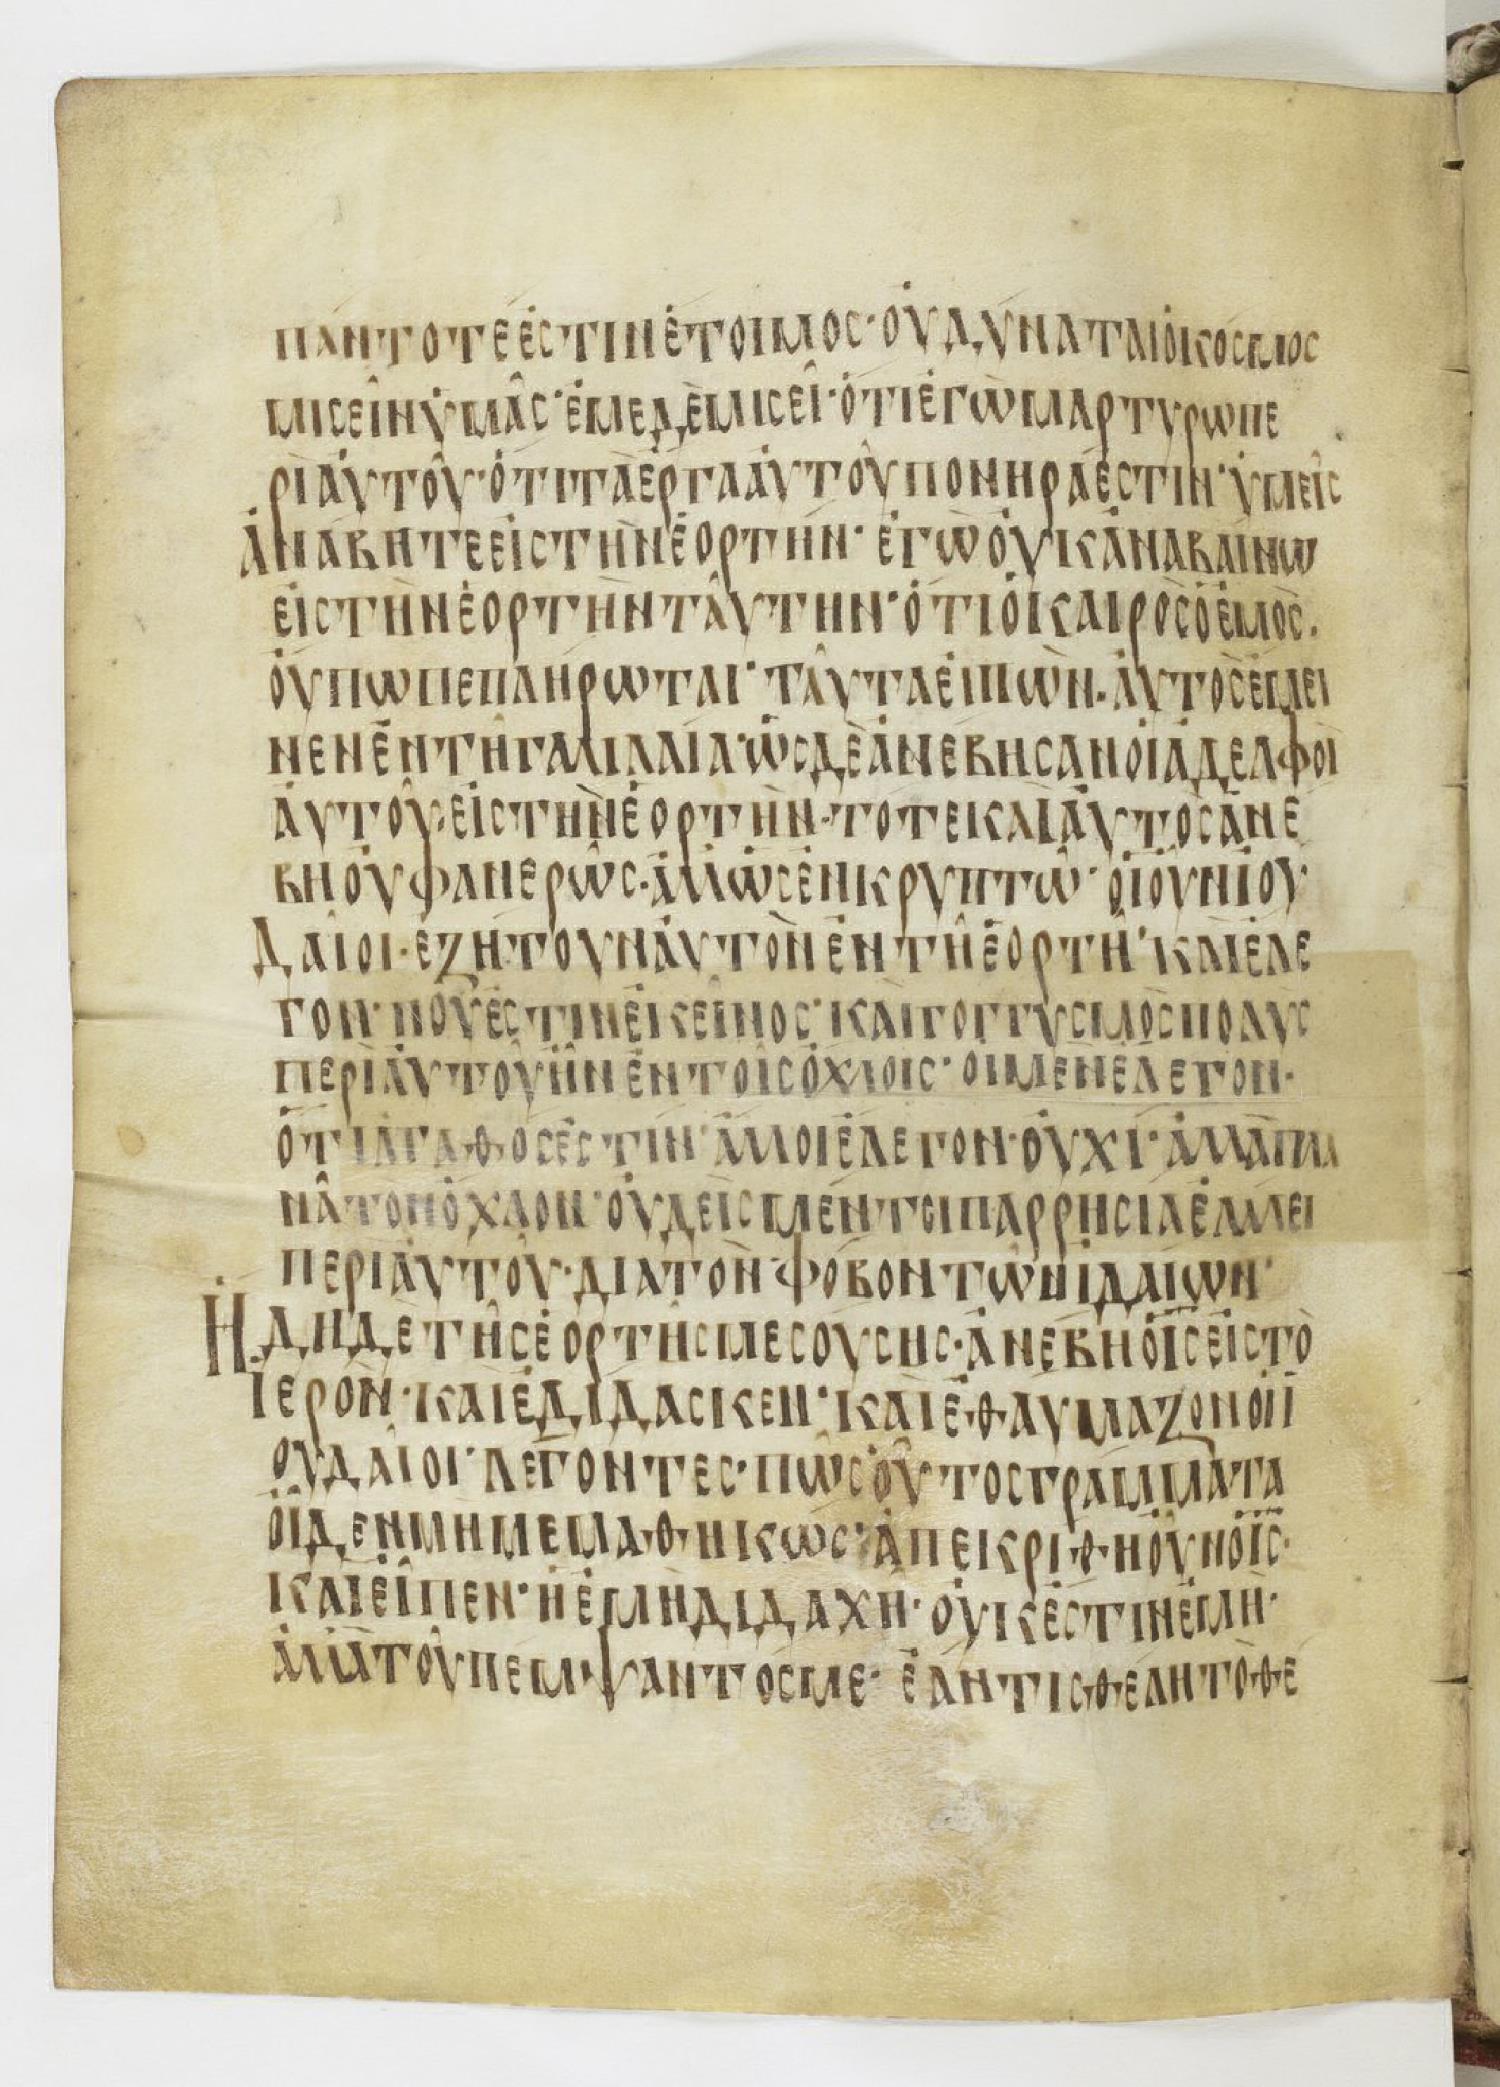 ΠΑΝΤΟΤΕ ἘΣΤΙΝ ἝΤΟΙΜΟΣ· ΟὐΔΥΝΑΤΑΙ ὉΚΟΣΜΟΣ
ΜΙΣΕῖΝ ὙΜᾶΣ· ἘΜΕ ΔῈ ΜΙΣΕῖ· ὍΤΙ ἘΓῺ ΜΑΡΤΥΡΩ ΠΕ
ΡΙ ΑὐΤΟῦ· ὍΤΙ ΤᾺ ἜΡΓΑ ΑὐΤΟῦ ΠΟΝΗΡΑ ἘΣΤΙΝ· ὙΜΕῖΣ
ἈΝΑΒΗΤΕ ΕἰΣ ΤῊΝ ἙΟΡΤΗΝ· ἘΓῺ ΟὐΚ ἈΝΑΒΑΙΝΩ
ΕἰΣ ΤῊΝ ἙΟΡΤῊΝ ΤΑῦΤΗΝ· ὍΤΙ Ὁ ΚΑΙΡῸΣ Ὁ ἘΜῸΣ.
ΟὔΠΩ ΠΕΠΛΗΡΩΤΑΙ· ΤΑῦΤΑ ΕἰΠΩΝ· ΑὐΤῸΣ ἘΜΕΙ
ΝΕΝ ἘΝ Τῆ ΓΑΛΙΛΑΙΑ· ὩΣ ΔῈ ἈΝΕΒΗΣΑΝ Οἱ ἈΔΕΛΦΟΙ
ΑὐΤΟῦ· ΕἰΣ ΤῊΝ ἙΟΡΤῊΝ· ΤΟΤΕ ΚΑΙ ΑὐΤῸΣ ἈΝΕ
ΒΗ ΟὐΦΑΝΕΡῶΣ· ἈΛΛ ὩΣ ἘΝ ΚΡΥΠΤῶ· Οἱ ΟὖΝ ἸΟΥ
ΔΑῖΟΙ· ἘΖΗΤΟΥΝ ΑὐΤῸΝ ἘΝ Τῆ ἙΟΡΤῆ· ΚΑΙ ἘΛΕ
ΓΟΝ· ΠΟῦ ἘΣΤΙΝ ἘΚΕῖΝΟΣ· ΚΑῚ ΓΟΓΓΥΣΜῸΣ ΠΟΛΥΣ
ΠΕΡῚ ΑὐΤΟῦ ἦΝ ἘΝ ΤΟῖΣ ὈΧΛΟΙΣ· Οἱ ΜῈΝ ἘΛΕΓΟΝ·
ὍΤΙ ἈΓΑΘΟΣ ἘΣΤΙΝ· ἈΛΛΟΙ ἘΛΕΓΟΝ· ΟὐΧΙ· ἈΛΛᾺ ΠΛΑ
Νᾶ ΤΟΝ ὈΧΛΟΝ· ΟὐΔΕῚΣ ΜΕΝΤΟΙ ΠΑΡΡΗΣΙΑ ἘΛΑΛΕΙ
ΠΕΡῚ ΑὐΤΟῦ· ΔΙΑ ΤῸΝ ΦΟΒΟΝ ΤῶΝ ἸΔΑΙΩΝ·
ἨΔΗ ΔῈ ΤῆΣ ἙΟΡΤῆΣ ΜΕΣΟΥΣΗΣ· ἈΝΕΒΗ Ὁ ΙΣ ΕἰΣ ΤῸ
ἹΕΡῸΝ· ΚΑΙ ἘΔΙΔΑΣΚΕΝ· ΚΑΙ ἘΘΑΥΜΑΖΟΝ Οἱ Ι
ΟΥΔΑῖΟΙ· ΛΕΓΟΝΤΕΣ· ΠῶΣ ΟὗΤΟΣ ΓΡΑΜΜΑΤΑ
ΟἶΔΕΝ ΜΗ ΜΕΜΑΘΗΚΩΣ· ἈΠΕΚΡΙΘΗ ΟὖΝ Ὁ ΙΣ·
ΚΑΙ ΕἶΠΕΝ· Ἡ ἘΜῊ ΔΙΔΑΧΗ· ΟὐΚ ἘΣΤΙΝ ἘΜῊ·
ἈΛΛᾺ ΤΟῦ ΠΕΜΨΑΝΤΟΣ ΜΕ· ἘΑΝ ΤΙΣ ΘΕΛΗ ΤῸ ΘΕ